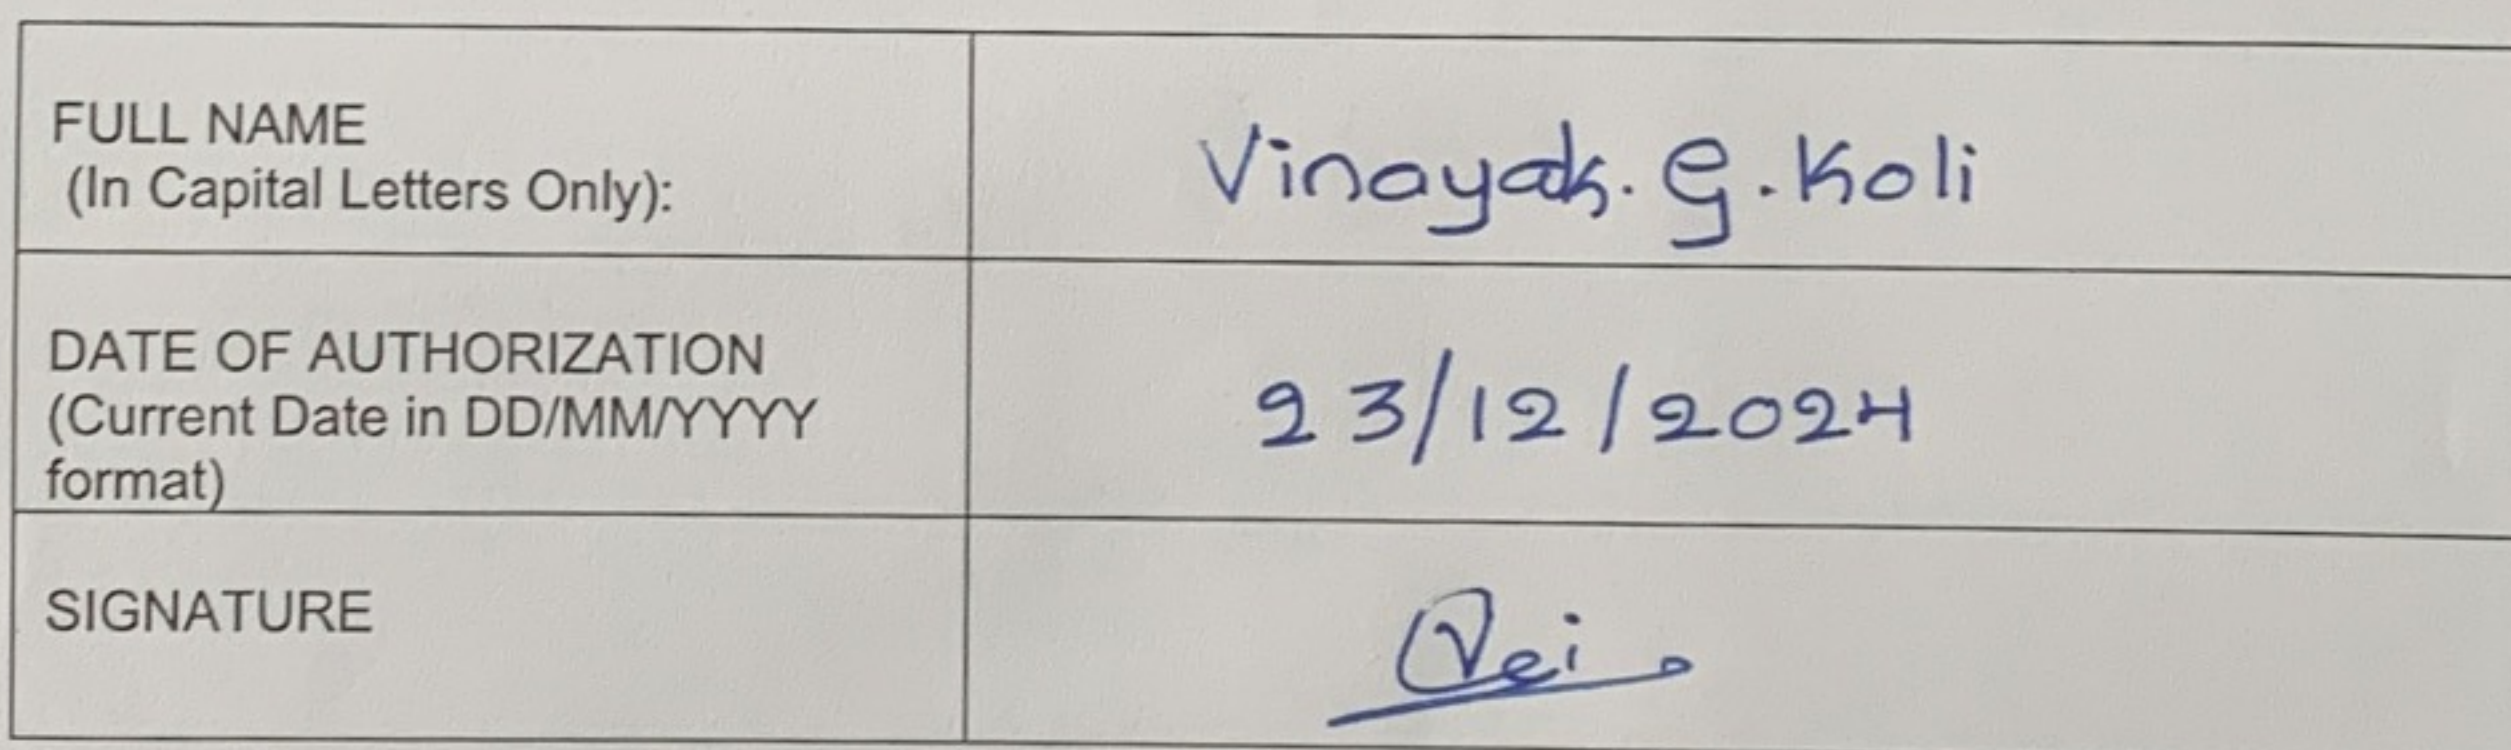 FULL NAME
(In Capital Letters Only):
Vinayak. G. Koli
DATE OF AUTHORIZATION
(Current Date in DD/MM/YYYY
format)
23/12/2024
SIGNATURE